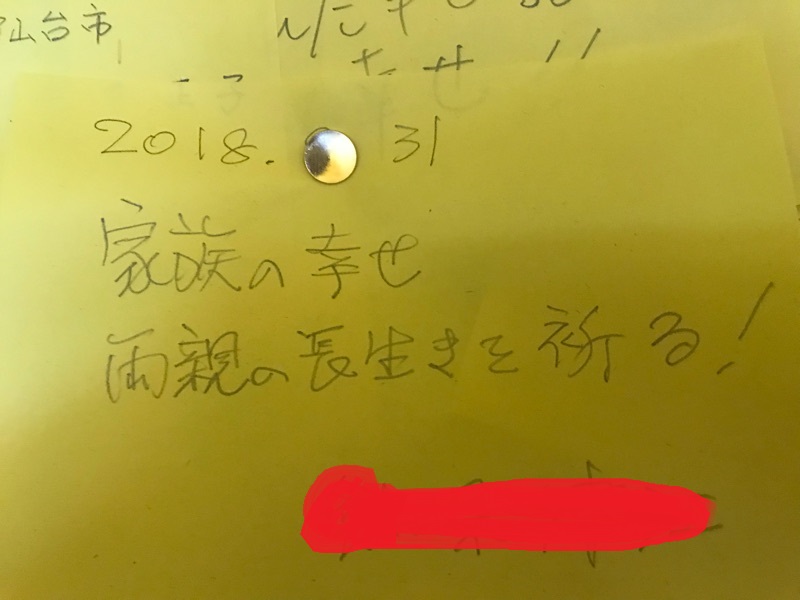 仙台市
幸せ!!
2018. 31
家族の幸せ
両親の長生きを祈る!